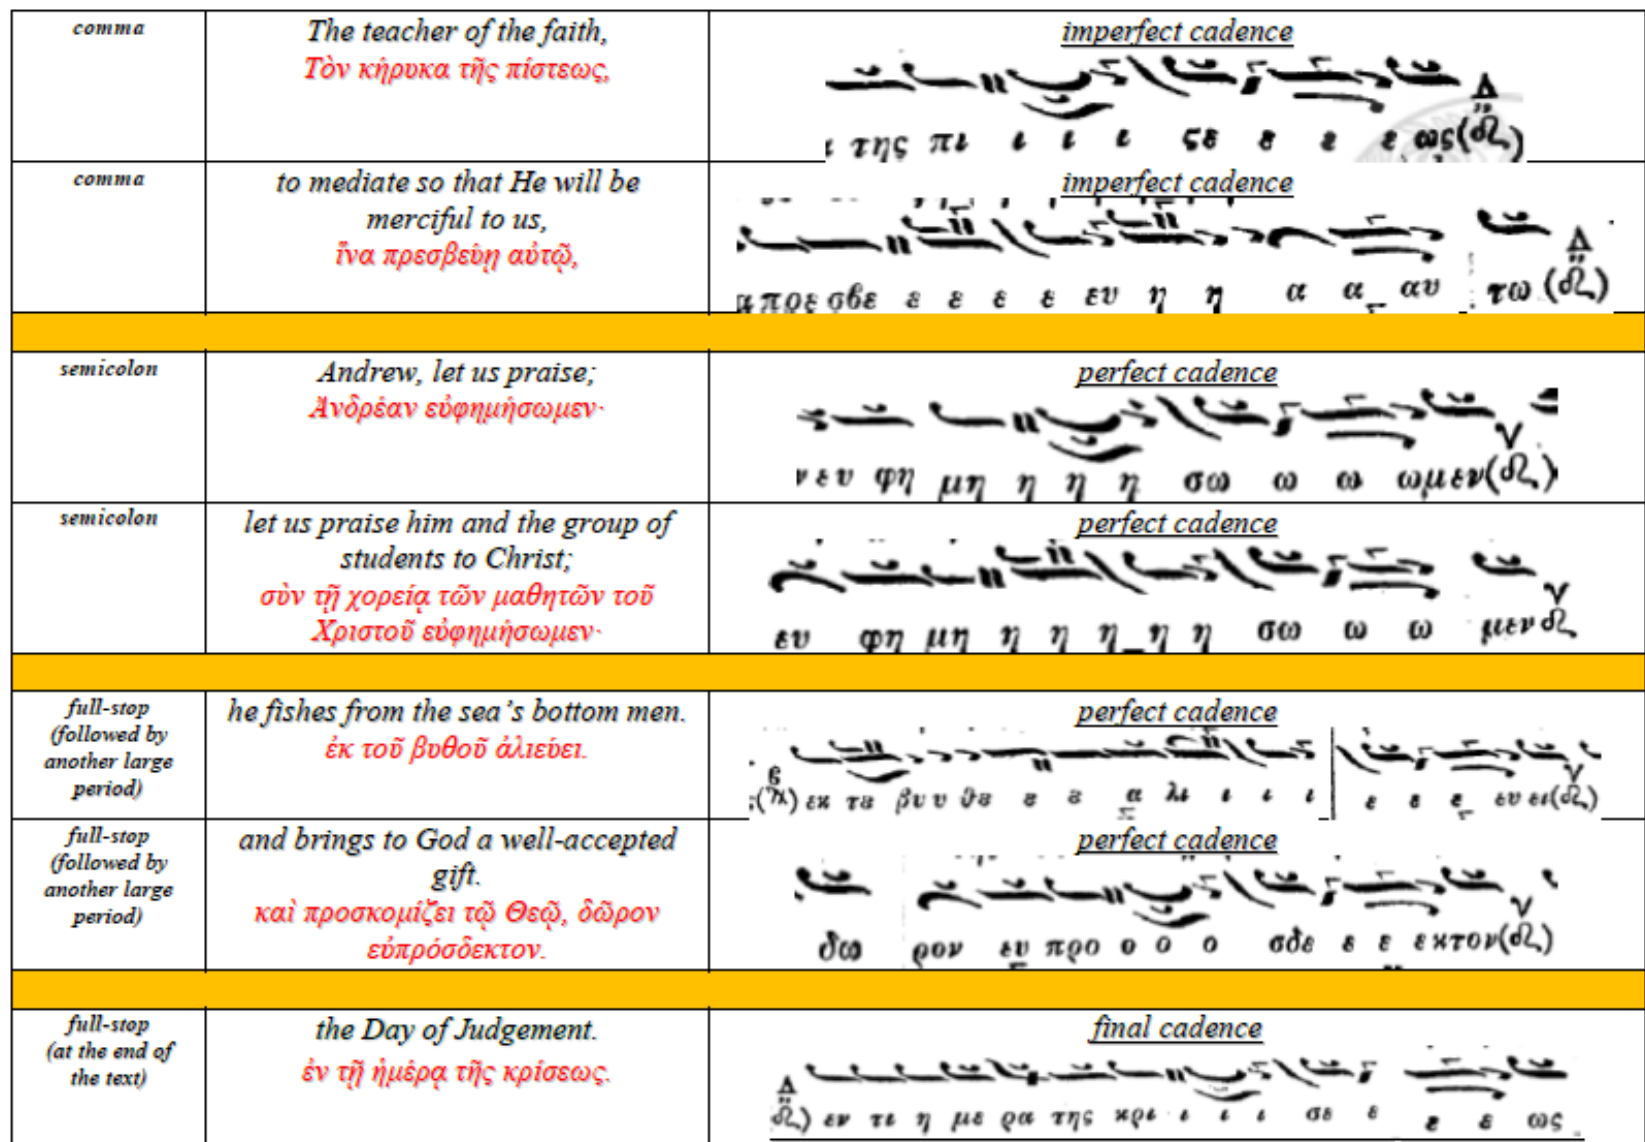 comma
The teacher of the faith,
Τὸν κήρυκα τῆς πίστεως,
imperfect cadence
ι της πι ι ι ι ςε ε ε ε ως
Δ
comma
to mediate so that He will be
merciful to us,
ἵνα πρεσβεύῃ αὐτῷ,
imperfect cadence
α πρε σβε ε ε ε ε ευ η η α α αυ τω
Δ
semicolon
Andrew, let us praise;
Ἀνδρέαν εὐφημήσωμεν·
perfect cadence
ν ευ φη μη η η η σω ω ω ωμεν
semicolon
let us praise him and the group of
students to Christ;
σὺν τῇ χορείᾳ τῶν μαθητῶν τοῦ
Χριστοῦ εὐφημήσωμεν·
perfect cadence
ευ φη μη η η η η η σω ω ω μεν
full-stop
(followed by
another large
period)
he fishes from the sea's bottom men.
ἐκ τοῦ βυθοῦ ἁλιεύει.
perfect cadence
εκ τȣ βυ υ θȣ ȣ ȣ α λι ι ι ι ε ε ε ευ ει
full-stop
(followed by
another large
period)
and brings to God a well-accepted
gift.
καὶ προσκομίζει τῷ Θεῷ, δῶρον
εὐπρόσδεκτον.
perfect cadence
δω ρον ευ προ ο ο ο σδε ε ε εκτον
full-stop
(at the end of
the text)
the Day of Judgement.
ἐν τῇ ἡμέρᾳ τῆς κρίσεως.
final cadence
Δ
εν τι η με ρα της κρι ι ι ι σε ε ε ε ως